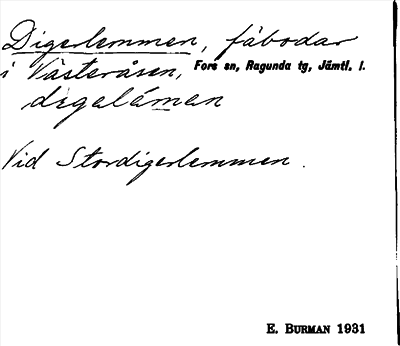 Digerlemmen, fäbodar
i Västeråsen, Fors sn, Ragunda tg, Jämtl. l.
digelémen
Vid Stordigerlemmen.
E. BURMAN 1931